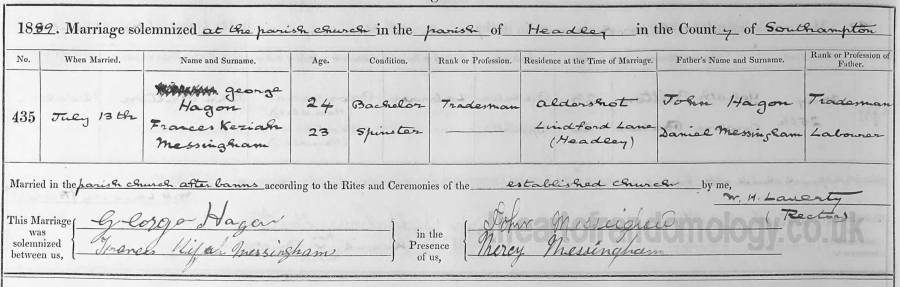 1889. Marriage solemnized at the parish church in the parish of Headley in the County of Southampton
No. When Married. Name and Surname. Age. Condition. Rank or Profession. Residence at the Time of Marriage. Father's Name and Surname. Rank or Profession of Father.
435 July 13th George Hagon 24 Bachelor Tradesman Aldershot John Hagon Tradesman
Frances Keziah Messingham 23 Spinster Lindford Lane (Headley) Daniel Messingham Labourer
Married in the parish church after banns according to the Rites and Ceremonies of the established church by me,
W. H. Laverty
(Rector)
This Marriage was solemnized between us,
George Hagon
Frances Messingham
in the Presence of us,
John
Mercy Messingham